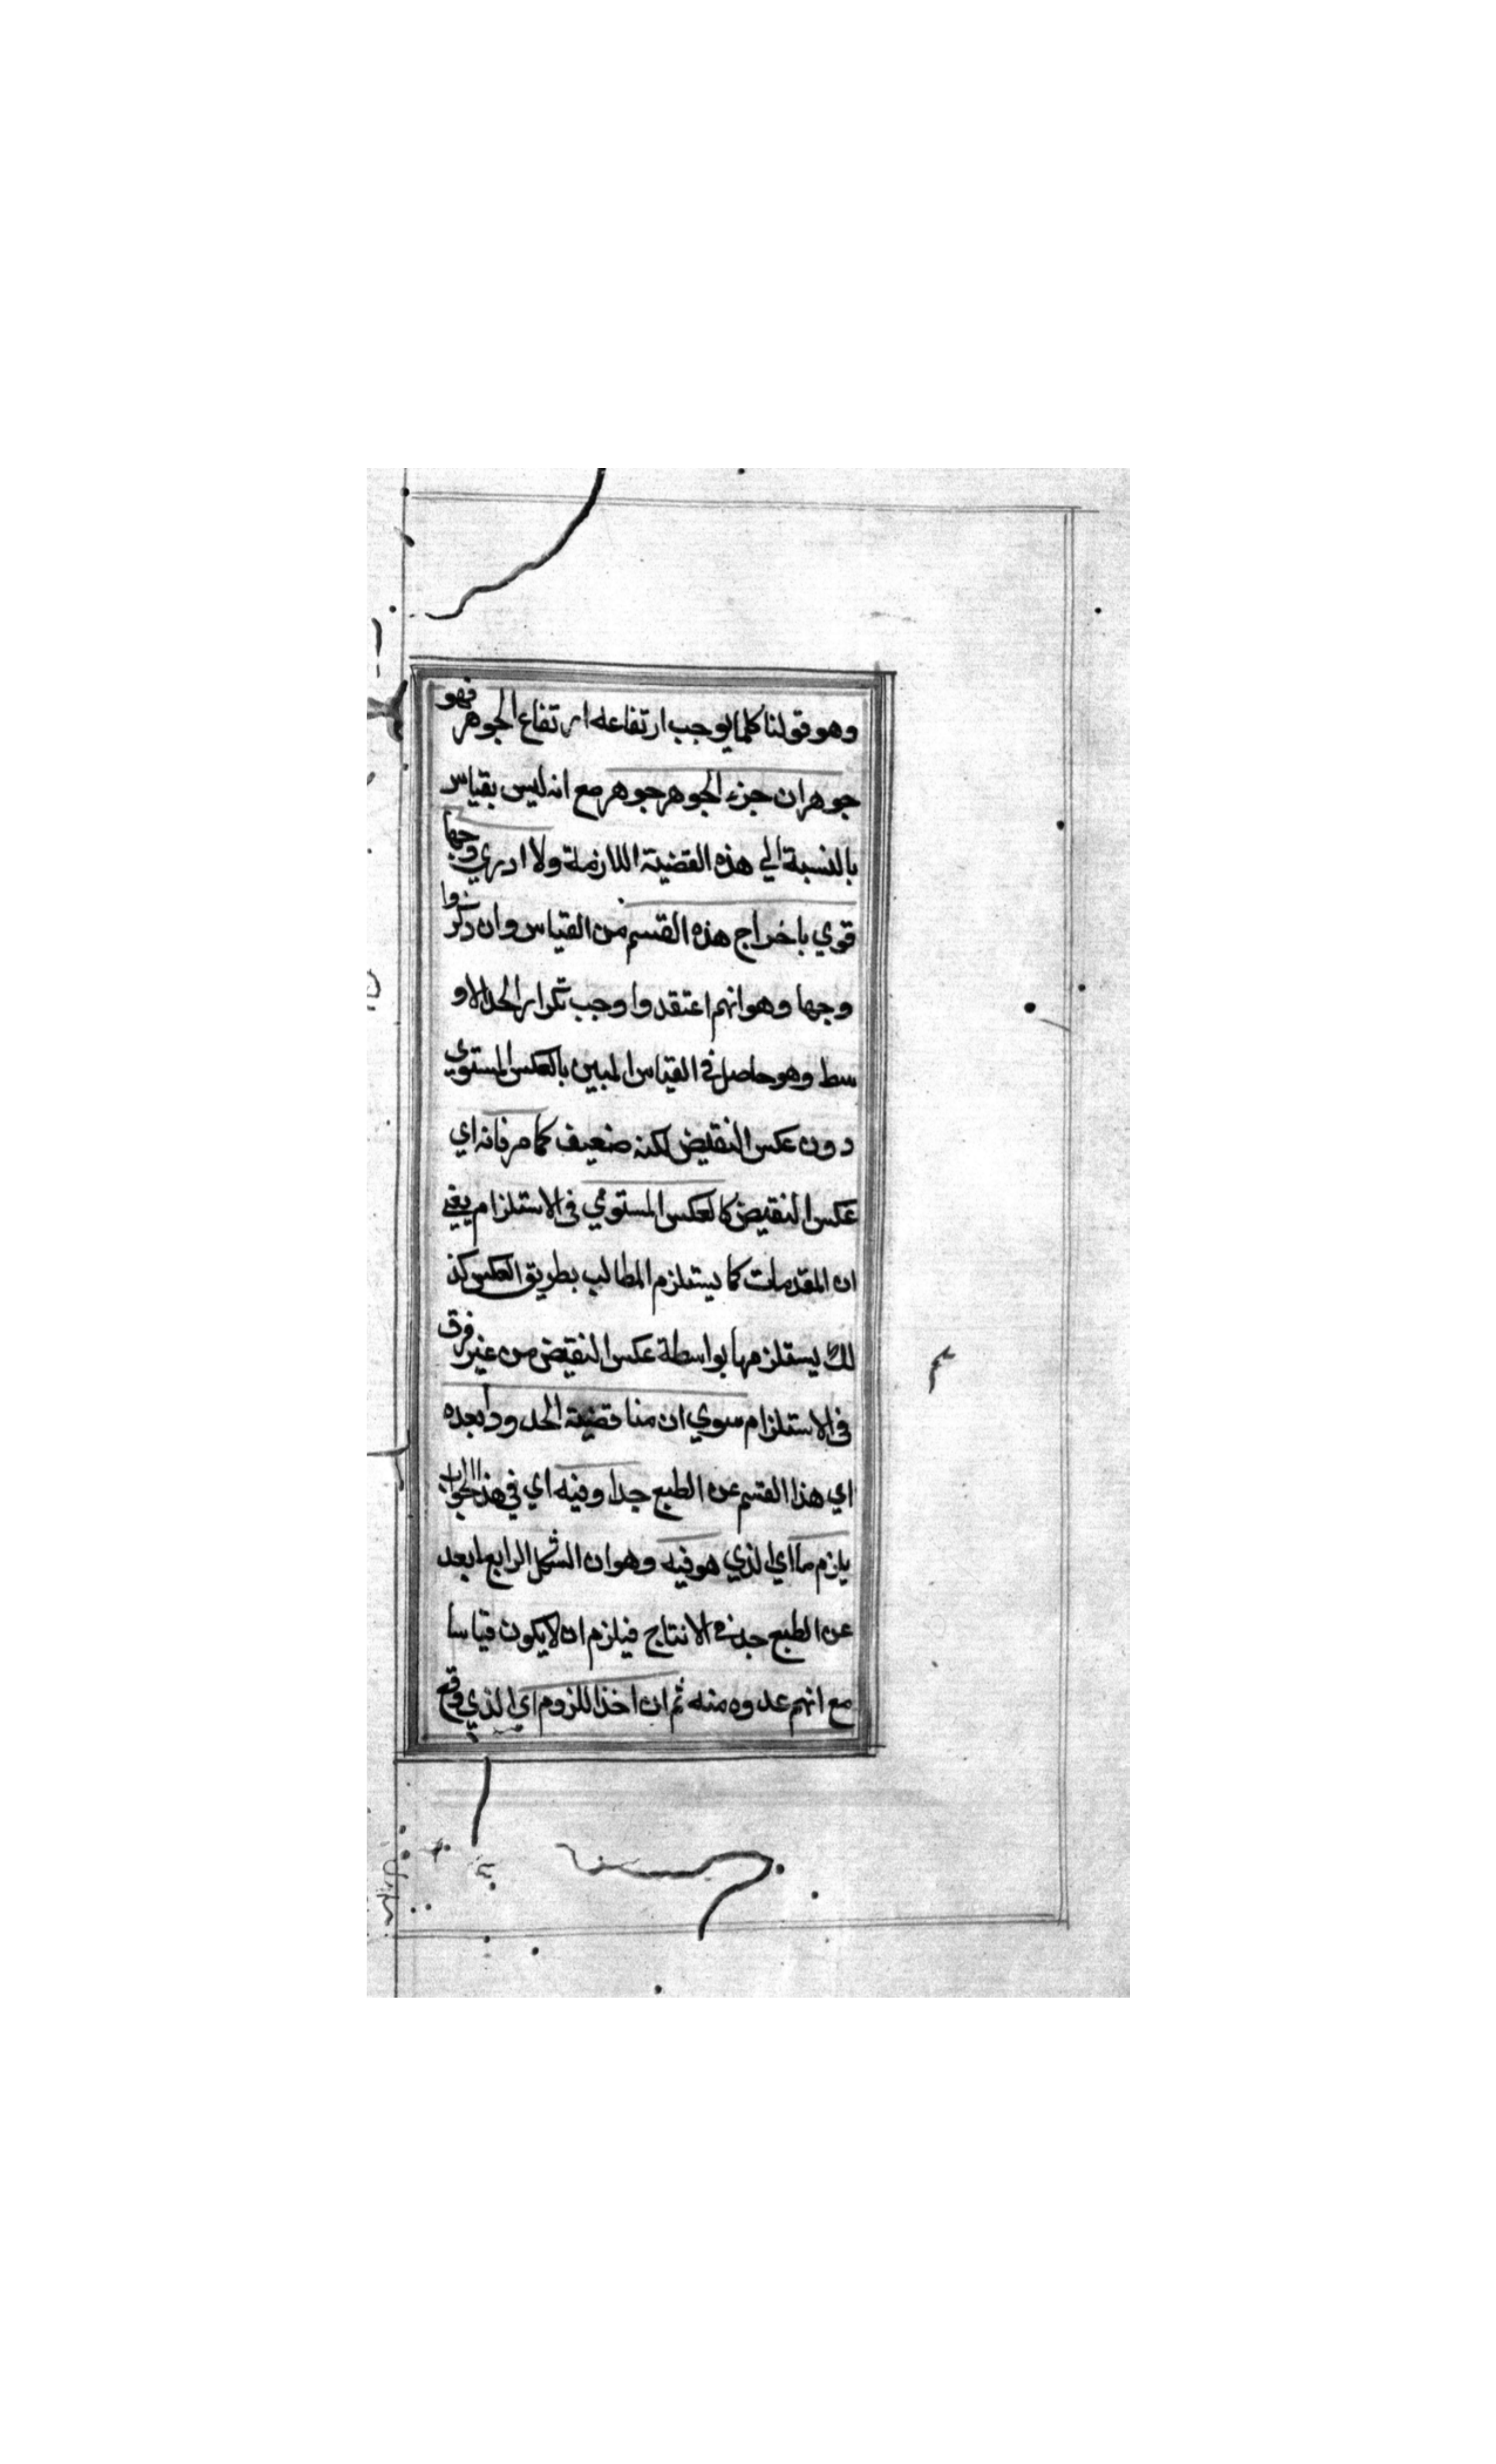 وهو قولنا كلما يوجب ارتفاعه ارتفاع الجوهر فهو
جوهر ان جزء الجوهر جوهر مع انه ليس بقياس
بالنسبة الي هذه القضية اللازمة ولا ادري وجها
قوي باخراج هذه القسم من القياس وان ذكروا
وجها وهو انهم اعتقدوا وجب تكرار الحد الاو
سط وهو حاصل في القياس المبين بالعكس المستوي
دون عكس النقيض لكنه ضعيف كما مر فانه اي
عكس النقيض كالعكس المستوي في الاستلزام يعني
ان المقدمات كما يستلزم المطالب بطريق العكس كذ
لك يستلزمها بواسطة عكس النقيض من غير فرق
في الاستلزام سوي ان مناقضية الحدود ابعده
اي هذا القسم عن الطبع جدا وفيه اي في هذا الجواب
يلزم ما اي الذي هو فيه وهو ان الشكل الرابع ابعد
عن الطبع جد في الانتاج فيلزم ان لا يكون قياسا
مع انهم عدوه منه ثم ان اخذ اللزوم اي الذي وقع